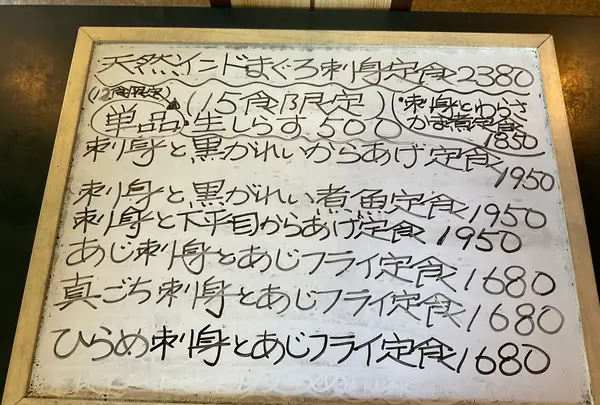 天然インドまぐろ刺身定食2380
(12食限定)
(15食限定)
単品 生しらす500
・刺身とわらさ
かま煮定食
1850
刺身と黒がれいからあげ定食
1950
刺身と黒がれい煮魚定食1950
刺身と下平目からあげ定食1950
あじ刺身とあじフライ定食1680
真ごち刺身とあじフライ定食1680
ひらめ刺身とあじフライ定食1680